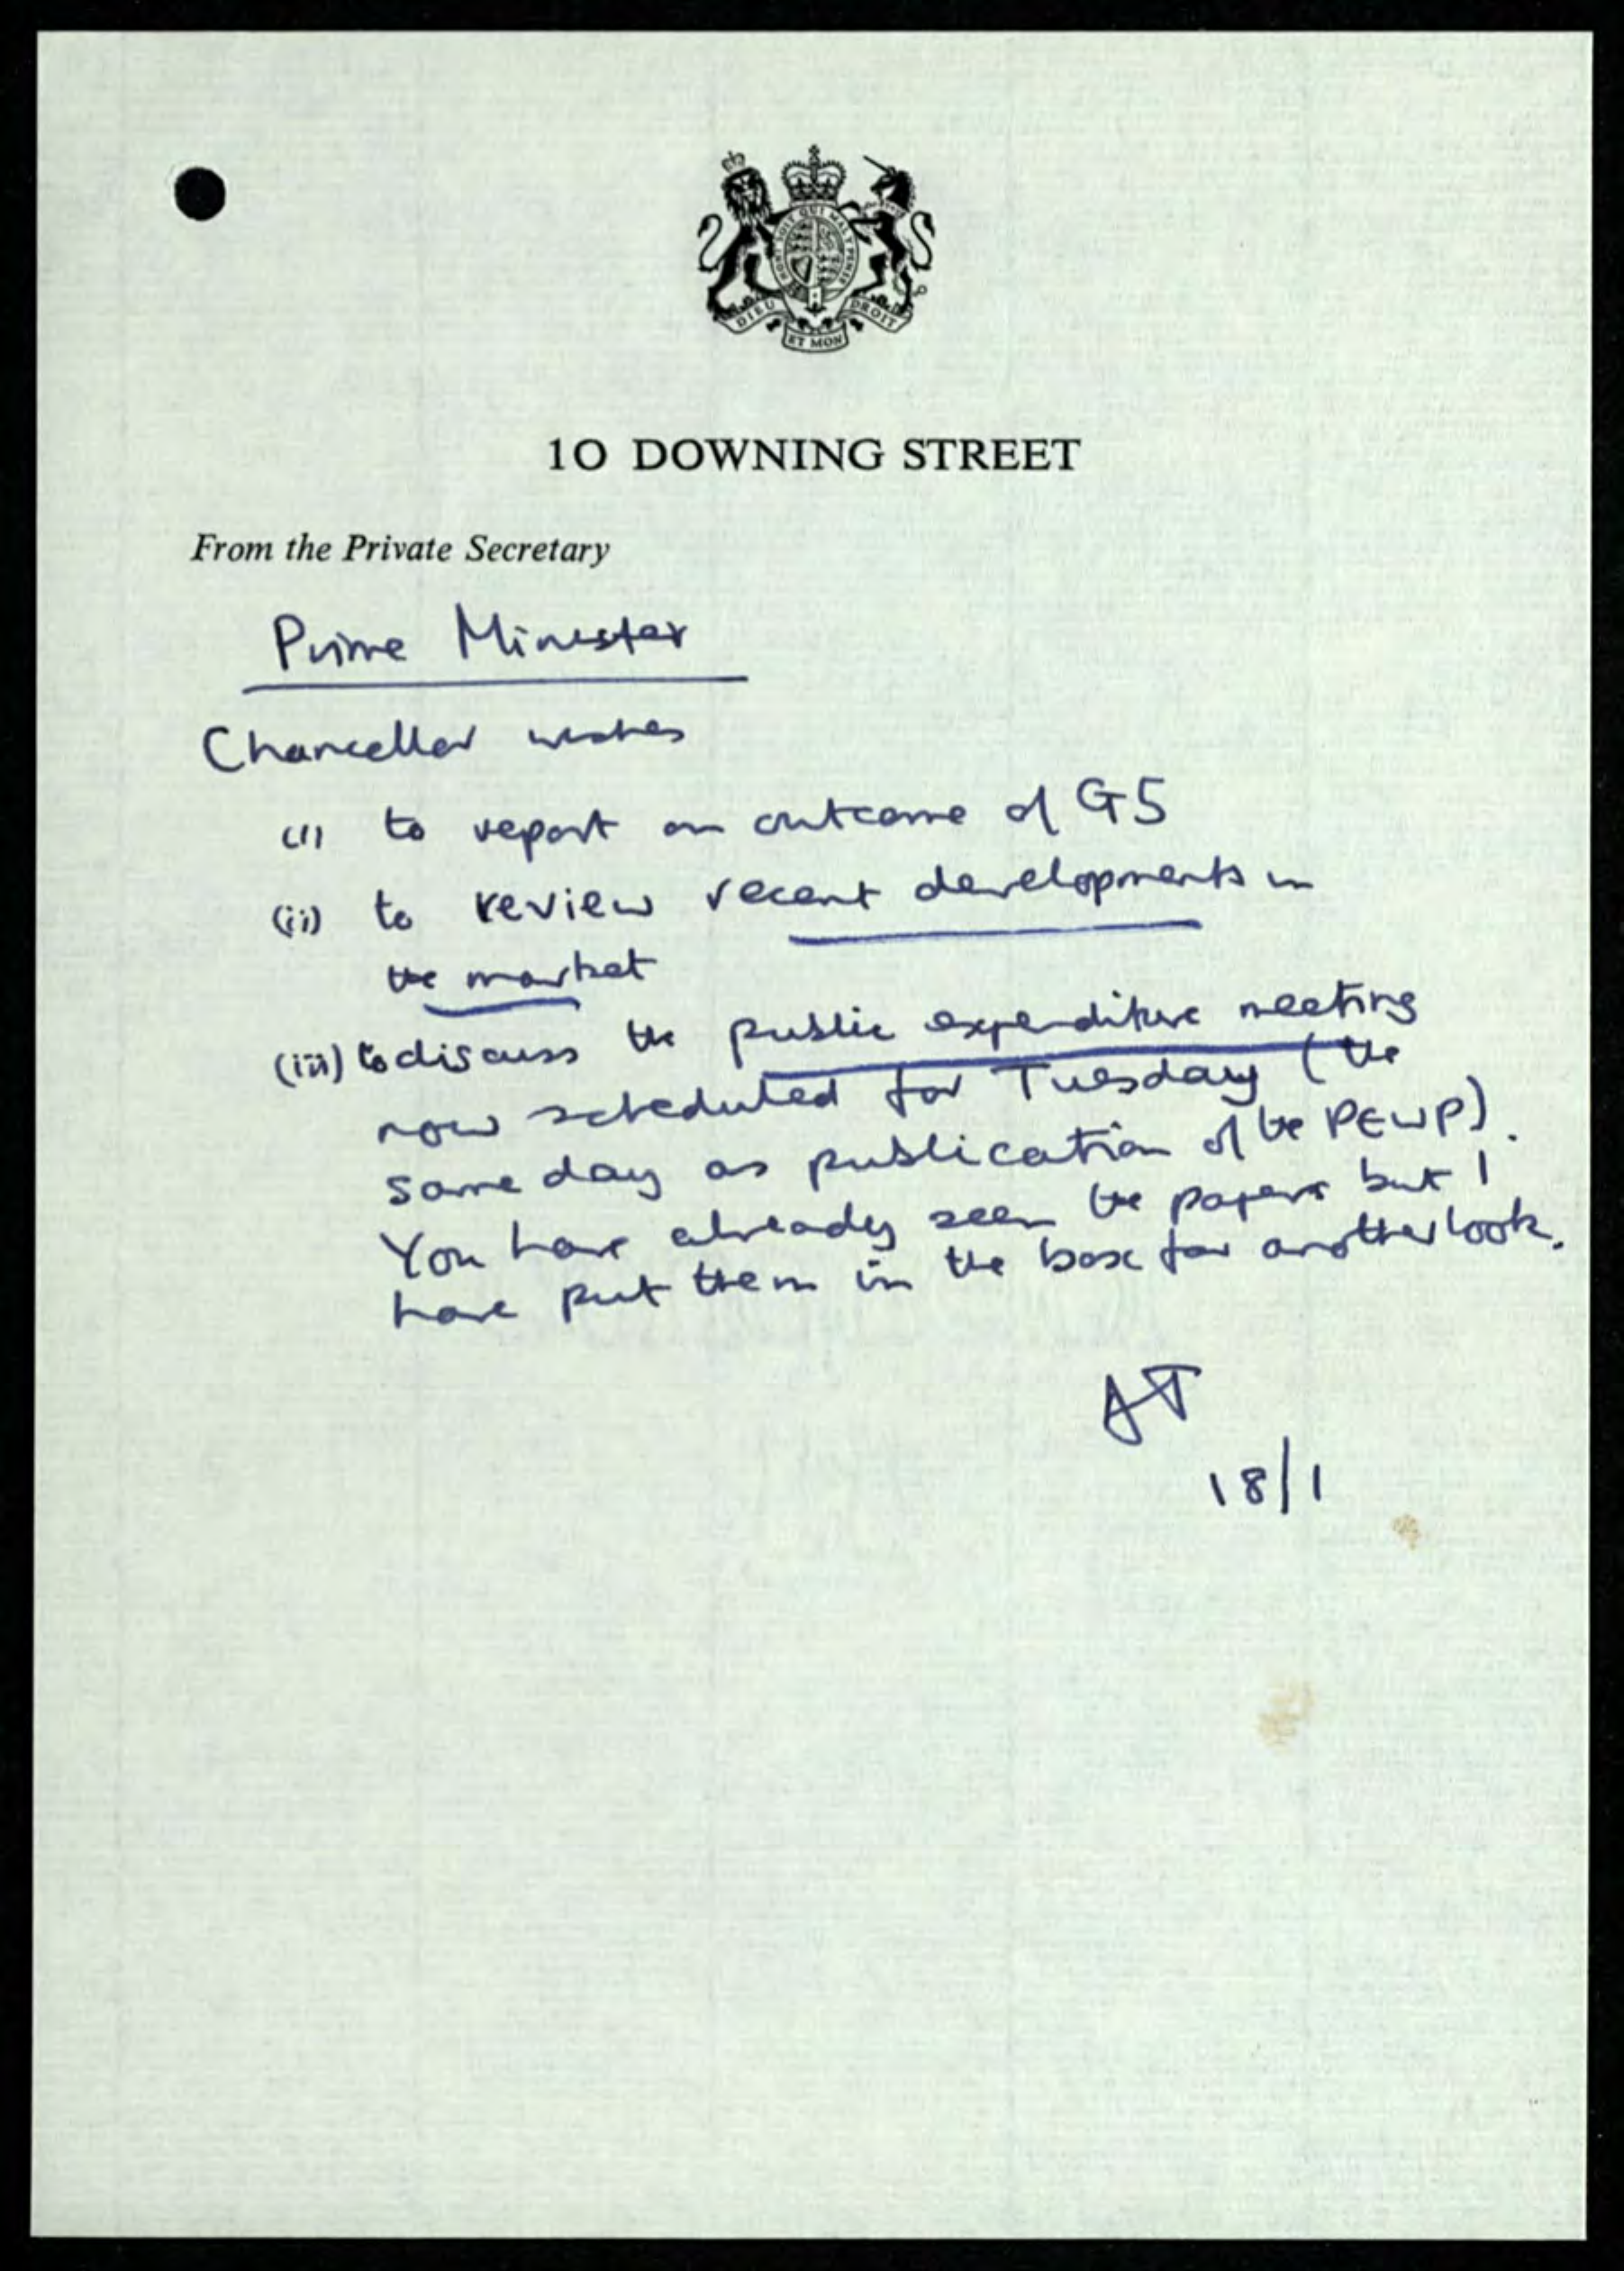 HONI SOIT QUI MAL Y PENSE
DIEU ET MON DROIT
10 DOWNING STREET
From the Private Secretary
Prime Minister
Chancellor wishes
(i) to report on outcome of G5
(ii) to review recent developments in
the market
(iii) to discuss the public expenditure meeting
now scheduled for Tuesday (the
same day as publication of the PEWP).
You have already seen the papers but I
have put them in the box for another look.
AT
18/1